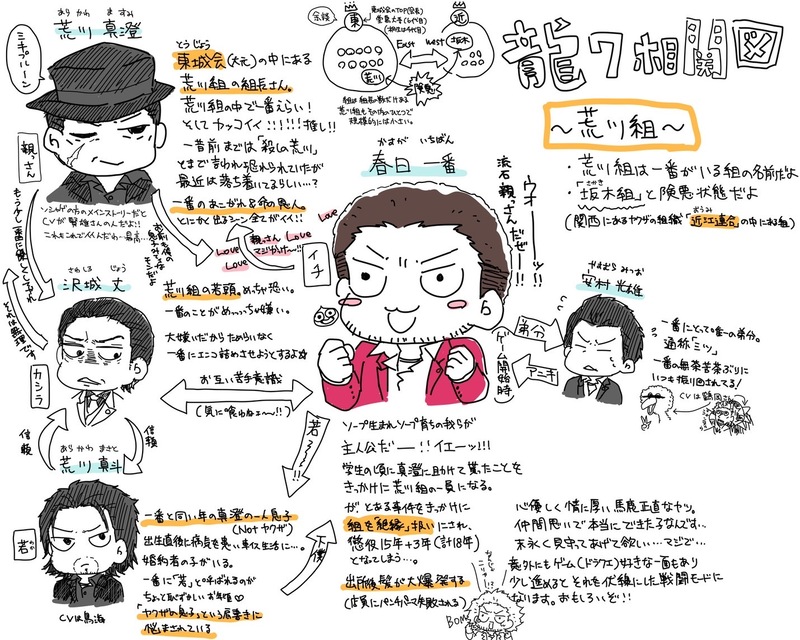 龍7相関図
〜荒川組〜
・荒川組は一番がいる組の名前だよ
・「坂木組」と険悪状態だよ
さかき
(関西にあるヤクザの組織「近江連合」の中にある組)
おうみ
余談
東
東城会のTOP(会長)
近
East
west
坂木
荒川
険悪
組は組長の数だけある
荒川組もその内のひとつで
規模的には小さい。
あらかわ ますみ
荒川 真澄
ミキプルーン
親っさん
とうじょう
東城会(大元)の中にある
荒川組の組長さん。
荒川組の中で一番えらい!
そしてカッコイイ!!!!!!推し!!
一昔前までは「殺しの荒川」
とまで言われ恐れられていたが
最近は落ち着いてるらしい…?
一番のあこがれ&命の恩人。
とにかく出るシーン全てがイイ!!
さわしろ じょう
沢城 丈
カシラ
それは無理です。
荒川組の若頭。めっちゃ恐い。
一番のことがめっっちゃ嫌い。
大嫌いだからためらいなく
一番にエンコ詰めさせようとするよ☆
お互い苦手意識
信頼
信頼
あらかわ まさと
荒川 真斗
若
わか
CVは鳥海
一番と同い年の真澄の一人息子
(Notヤクザ)
出生直後に病気を患い車イス生活に…。
婚約者の子がいる。
一番に「若」と呼ばれるのが
ちょっと恥ずかしいお年頃♡
「ヤクザの息子」という肩書きに
悩まされている
かすが いちばん
春日 一番
ウオーーッ!!
流石親っさんだぜー!!
イチ
親っさん
マジかっけ〜!!
Love
Love
Love
Love
Love
若〜!!
ゲーム開始時
ソープ生まれソープ育ちの我らが
主人公だー!!イエーッ!!!
学生の頃に真澄に助けて貰ったことを
きっかけに荒川組の一員になる。
がとある事件をきっかけに
組を「絶縁」扱いにされ、
懲役15年+3年(計18年)
となってしまう…。
出所後髪が大爆発する
(店員にパンチパーマ失敗される)
BOM
なんじゃこりゃー!
弟分
アニキ
やすむら みつお
安村 光雄
一番にとって唯一の弟分。
通称「ミツ」
一番の無茶苦茶ぶりに
いつも振り回されてる!
CVは鶴岡さん
心優しく情に厚い馬鹿正直なヤツ。
仲間思いで本当にできた子なんです…
末永く見守ってあげて欲しい…マジで…
意外にもゲーム(ドラクエ)好きな一面もあり
少し進めるとそれを伏線にした戦闘モードに
なります。おもしろいぞ!!